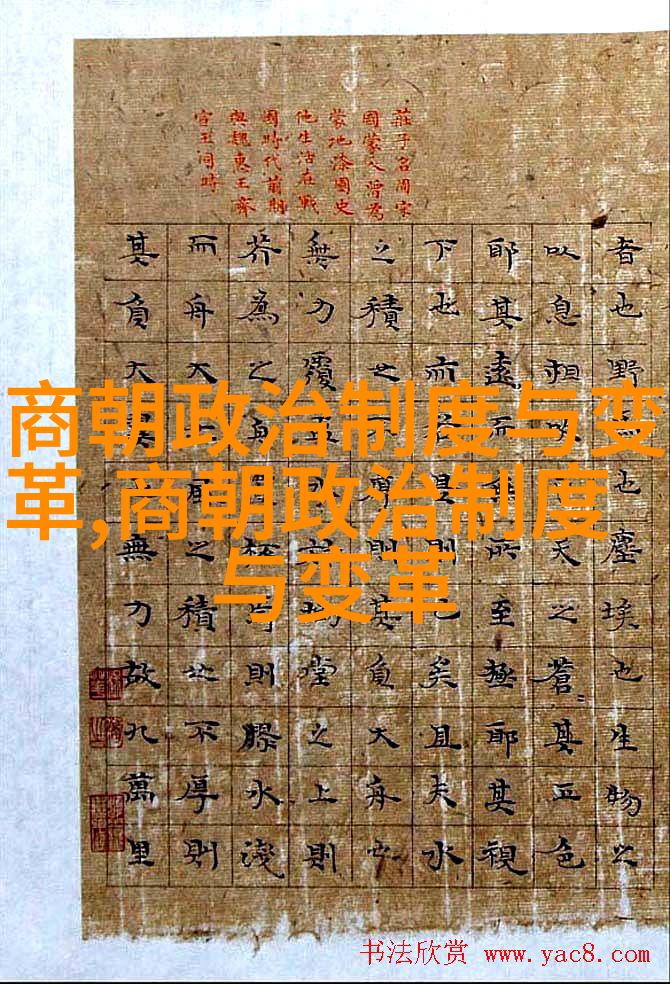 莊子名周宋
國蒙人曾為
蒙地漆園史
他生活在戰
國時代前期
與魏惠王齊
宣王同時
者也野馬也塵埃也生物之
以息相吹天之蒼其正色
耶其遠而無所至極耶其視
下也而若是則已矣且夫水
之積也不厚則其負大舟也
無力覆杯水於坳堂之上則
芥為之舟置杯焉則膠水淺
而舟大也風之積也不厚則
其負大翼也無力故九萬里
商朝政治制度与变
革,商朝政治制度
与变革
书法欣赏 www.yac8.com